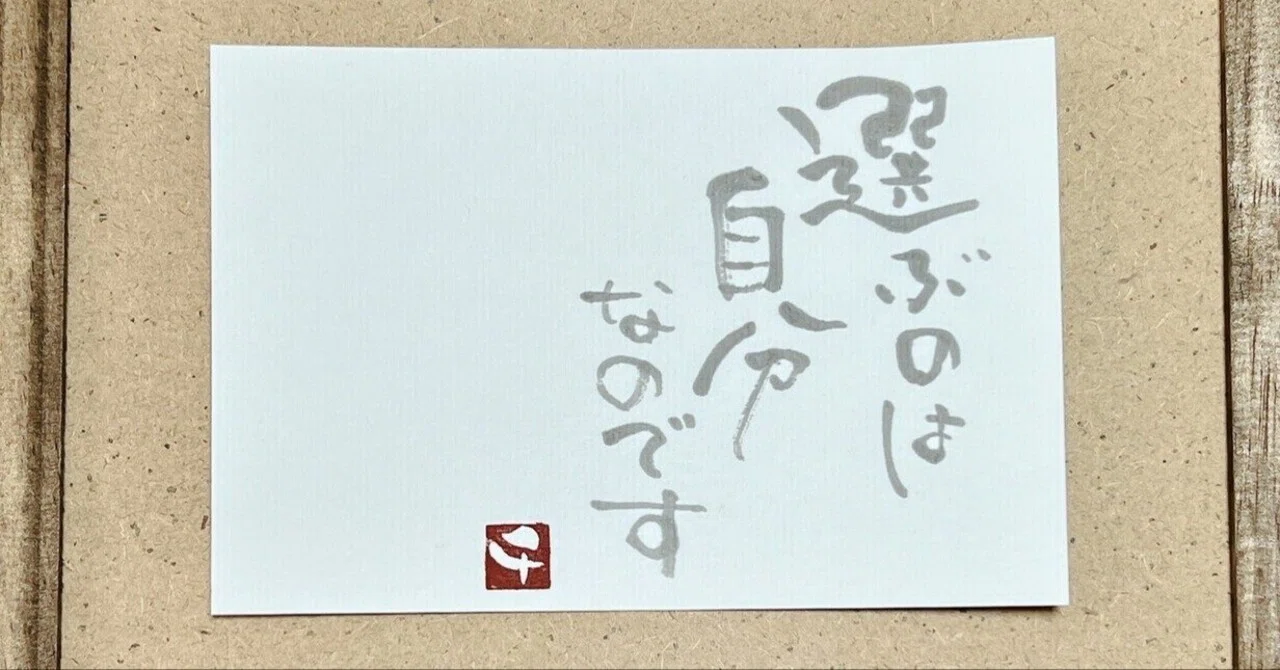 選ぶのは
自分
なのです